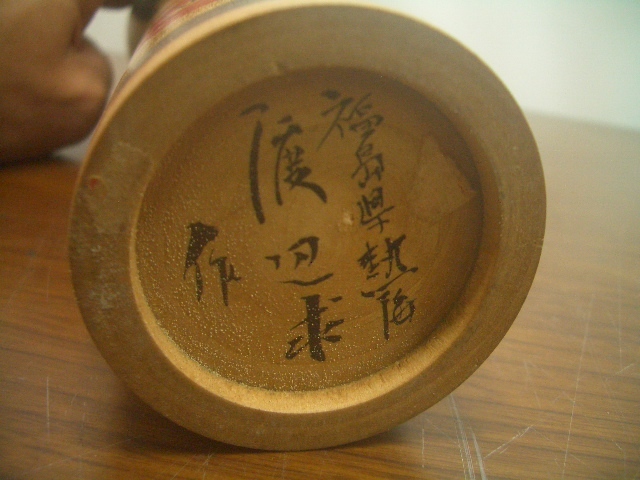 福島県熱海
渡辺求
作